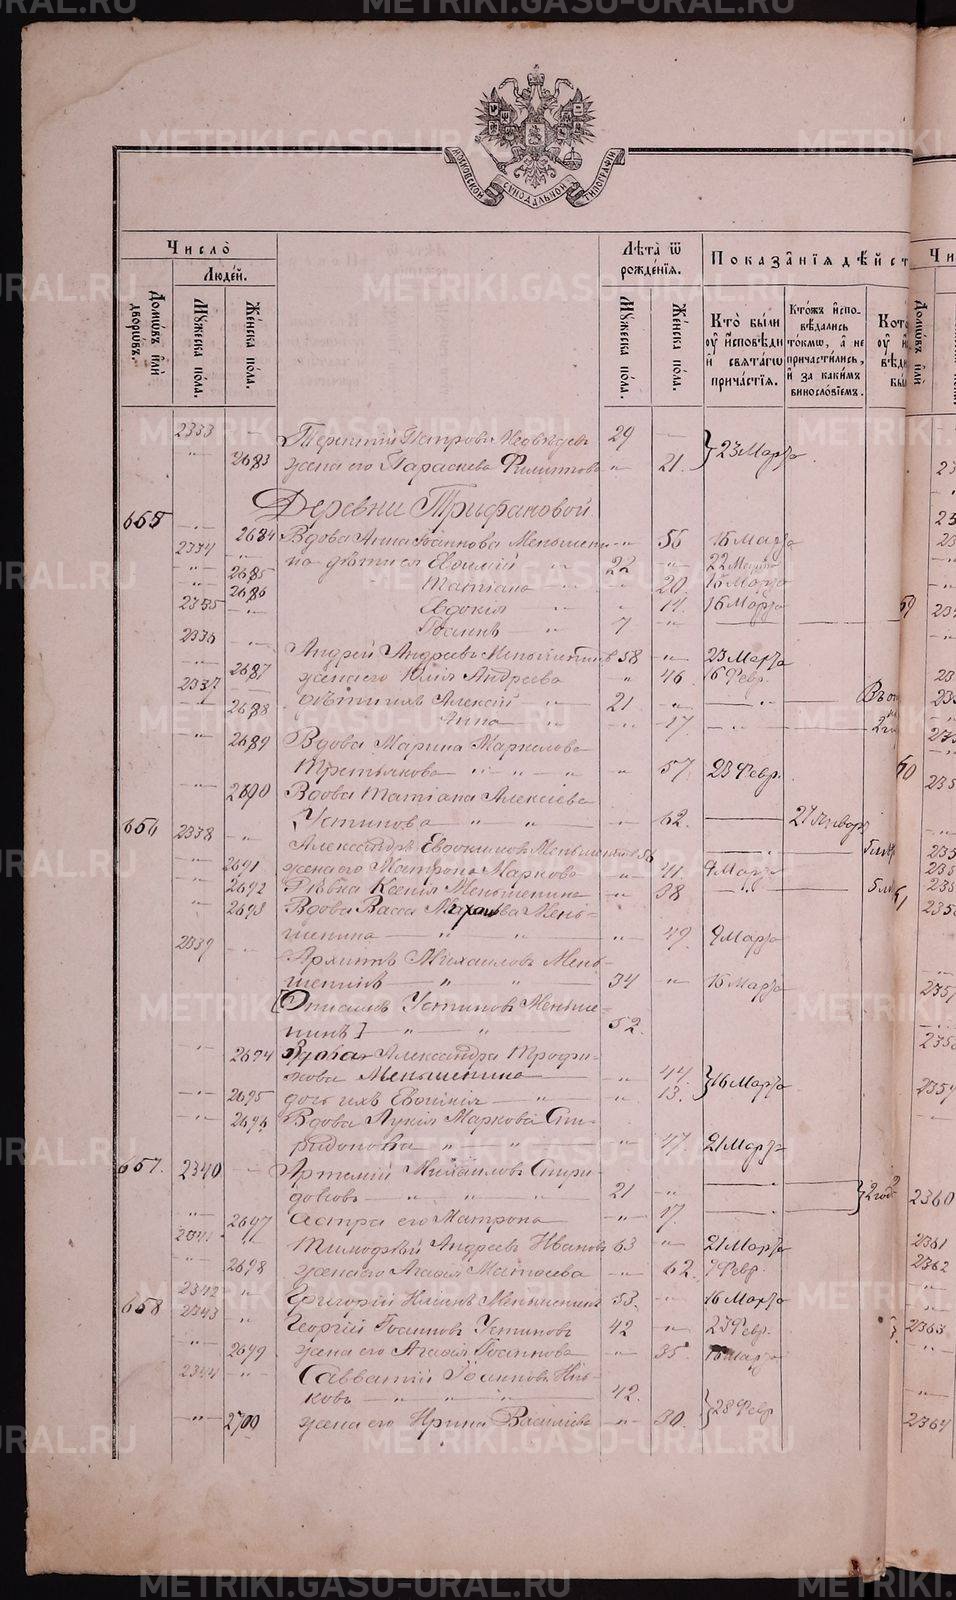 METRIKI.GASO-URAL.RU
МОСКОВСКОЙ СѴНОДАЛЬНОЙ ТИПОГРАФІИ
Число̀
Люде́й.
Домѡ́въ и҆лѝ дворѡ́въ.
Мꙋ́жеска по́ла.
Же́нска по́ла.
Лѣ́та ѿ рожде́нїѧ.
Мꙋ́жеска по́ла.
Же́нска по́ла.
Показа̑нїѧ дѣ́йст
Кто̀ бы́ли ᲂу҆ и҆сповѣди и҆ свѧта́гѡ прича́стїѧ.
Кто́жъ и҆спо- вѣ́дались то́кмѡ, а҆ не причасти́лись, и҆ за каки́мъ виносло́вїемъ.
2333 Терентій Петровъ Медвѣдевъ 29
2683 жена его Параскева Филиппова 21. 23 Марта
Деревни Трифановой
655 2684 Вдова Анна Іоаннова Меньшени 56 16 Марта
2334 на дѣти ея Евѳимій 22 22 Марта
2685 Татіана 20. 15 Марта
2686 Евдокія 11. 16 Марта
2335 Іоаннъ 7
2336 Андрей Андреевъ Меньшенинъ 58 23 Марта
2687 жена его Юлія Андреева 46 16 Февр.
2337 дѣти ихъ Алексій 21
2688 Анна 17
2689 Вдова Марина Маркелова
Третьякова 57. 23 Февр.
2690 Вдова Татіана Алексіева
Устинова 62. 27 Январ
656 2338 Александръ Евдокимовъ Меньшенинъ 56
2691 жена его Матрона Маркова 41. 9 Марта
2692 Дѣвка Ксенія Меньшенина 38
2693 Вдова Васса Михайлова Мень-
шенина 49. 9 Марта
2339 Архиппъ Михаиловъ Мень-
шенинъ 34 16 Марта
[Онисимъ Устиновъ Меньше-
нинъ] 52.
2694 Вдова Александра Трофи-
мова Меньшенина 44
2695 дочь ихъ Евгенія 13. 16 Марта
2696 Вдова Лукія Маркова Спи-
ридонова 47 21 Марта
657. 2340 Артемій Михаиловъ Спири-
доновъ 21
2697 Сестра его Матрона 17. 2 год
2341 Тимофѣй Андреевъ Ивановъ 63 21 Марта
2698 жена его Агафія Матѳеева 62. 9 Февр.
2342 Григорій Иліинъ Меньшенинъ 53. 16 Марта
658 2343 Георгій Іоанновъ Устиновъ 42 23 Февр.
2699 жена его Агафія Іоаннова 35. 16 Марта
2344 Савватій Іоанновъ
ковъ 42.
2700 жена его Ирина Василіева 30. 28 Февр